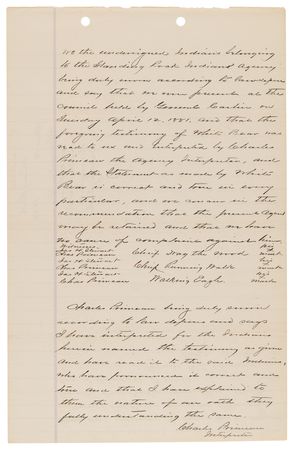 We the undersigned Indians belonging
to the Standing Rock Indian Agency
being duly sworn according to law depose
and say that we were present at the
Council held by General Carlin on
Tuesday April 12. 1881. and that the
forgoing testimony of White Bear was
read to us and interpreted by Charles
Primeau the Agency Interpreter, and
that the Statement as made by White
Bear is correct and true in every
particular, and we concur in the
recommendation that the present Agent
may be retained and that we have
no cause of complaint against him.
Witness
Chas Primeau Chief Drag the Wood his mark
Chas Primeau Chief Running Walk his mark
Chas Primeau Walking Eagle his mark
Charles Primeau being duly sworn
according to law deposes and says
I have interpreted for the Indians
herein named the testimony as given
and have read it to the said Indians,
who have pronounced it correct and
true and that I have explained to
them the nature of an oath they
fully understanding the same.
Charles Primeau
Interpreter